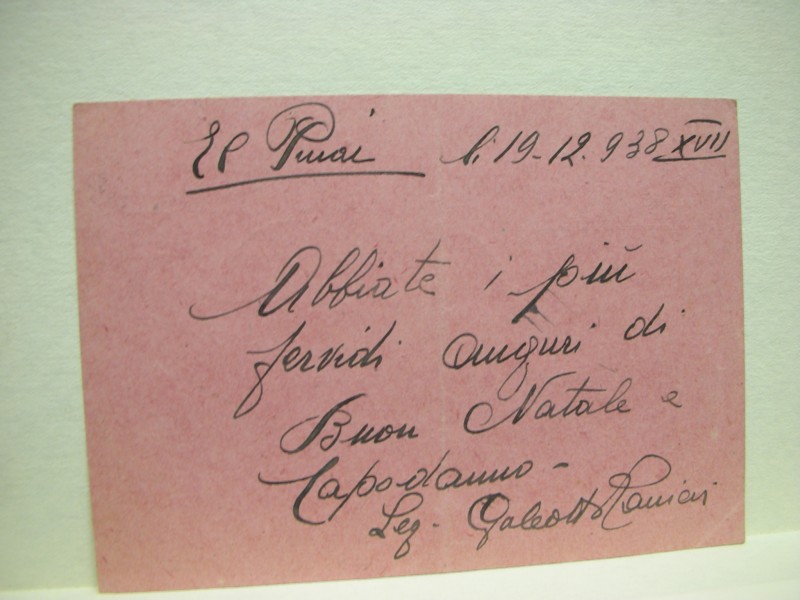 El Duoi lì 19-12.938 XVII
Abbiate i più
fervidi auguri di
Buon Natale e
Capodanno -
Leg. Galeotto